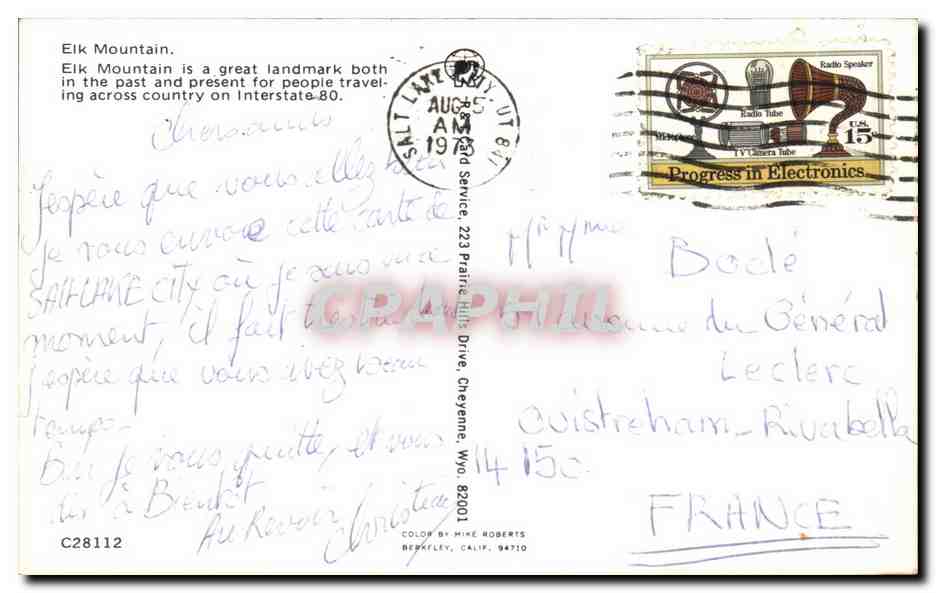 Elk Mountain.
Elk Mountain is a great landmark both
in the past and present for people travel-
ing across country on Interstate 80.
J'espère que vous allez bien
je vous envoie cette carte de
SALT LAKE CITY où je suis
moment, il fait
J'espère que vous avez beau
temps.
Bon je vous quitte, et vous
dis à Bientôt
Au Revoir
C28112
R&R Card Service, 223 Prairie Hills Drive, Cheyenne, Wyo. 82001
COLOR BY MIKE ROBERTS
BERKELEY, CALIF. 94710
SALT LAKE CITY, UT 841
AUG 5
AM
Radio Speaker
Radio Tube
TV Camera Tube
U.S. 15c
Progress in Electronics
Mr Mme
Bodé
avenue du Général
Leclerc
Ouistreham-Rivabella
14150
FRANCE
CPAPHIL